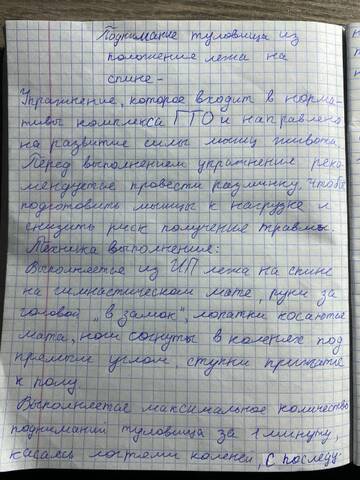 Поднимание туловища из
положения лежа на
спине -
Упражнение, которое входит в норма-
тивы комплекса ГТО и направлено
на развитие силы мышц живота.
Перед выполнением упражнение реко-
мендуется провести разминку, чтобы
подготовить мышцы к нагрузке и
снизить риск получение травмы.
Техника выполнение:
Выполняется из ИП лежа на спине
на гимнастическом мате, руки за
головой „в замок", лопатки касаются
мата, ноги согнуты в коленях под
прямым углом, ступни прижаты
к полу.
Выполняется максимальное количество
поднимании туловища за 1 минуту,
касаясь локтями коленей, с последу-